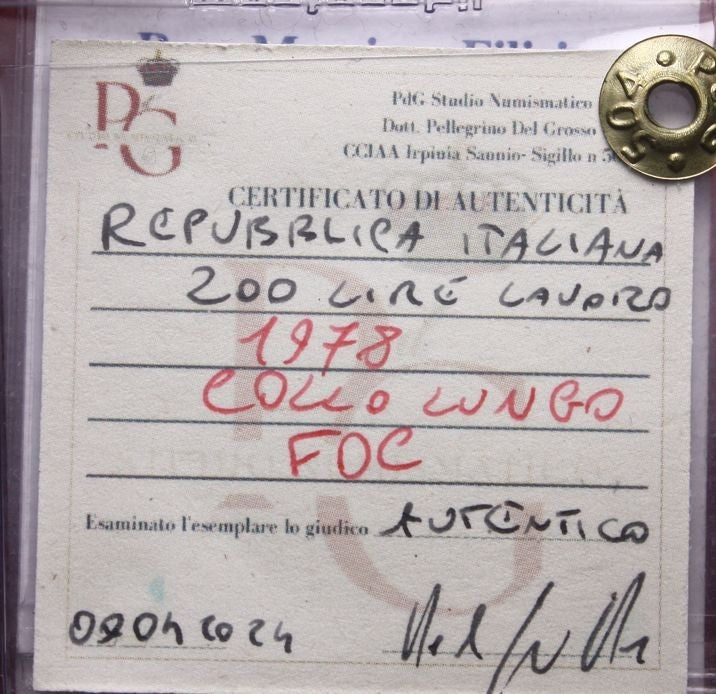 PG
PdG Studio Numismatico
Dott. Pellegrino Del Grosso
CCIAA Irpinia Sannio- Sigillo n
CERTIFICATO DI AUTENTICITÀ
REPUBBLICA ITALIANA
200 LIRE LAVORO
1978
COLLO LUNGO
FDC
Esaminato l'esemplare lo giudico AUTENTICO